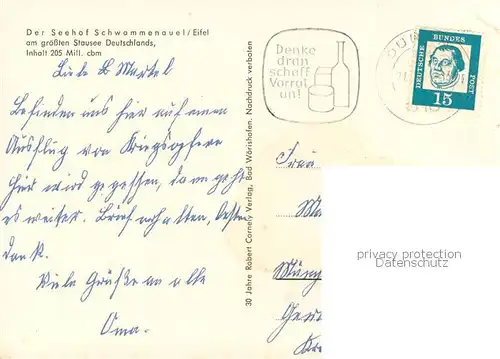 Der Seehof Schwammenauel/Eifel
am größten Stausee Deutschlands,
Inhalt 205 Mill. cbm
Liebe Martel
Befinden uns hier auf einem
Ausflug von Kriegsopfern
Hier wird gegessen, dann geht
es weiter. Brief erhalten, besten
Dank.
Viele Grüße an alle
Oma.
30 Jahre Robert Cornely Verlag, Bad Wörishofen, Nachdruck verboten
Denke
dran
schaff
Vorrat
an!
DEUTSCHE
BUNDES
POST
15
Frau
privacy protection
Datenschutz